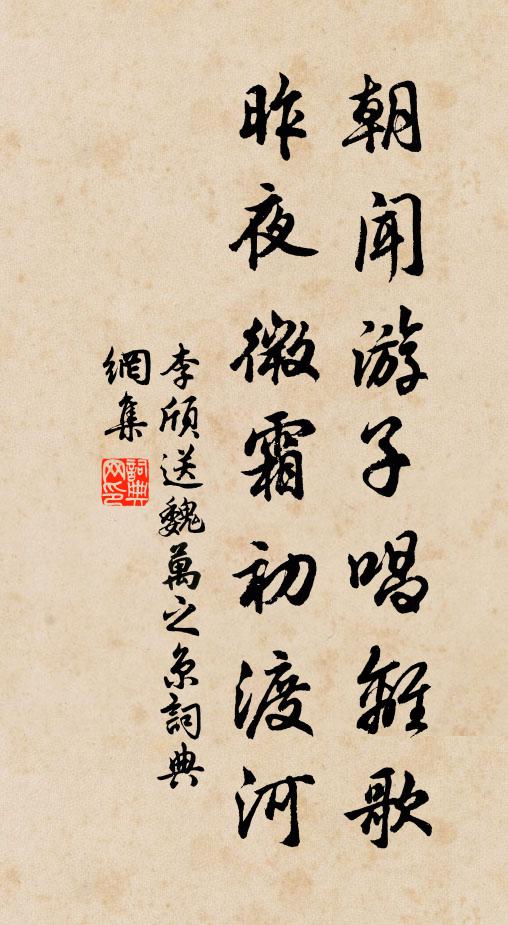 朝闻游子唱離歌
昨夜微霜初渡河
李頎送魏萬之京詞典
網集
詞典
网印